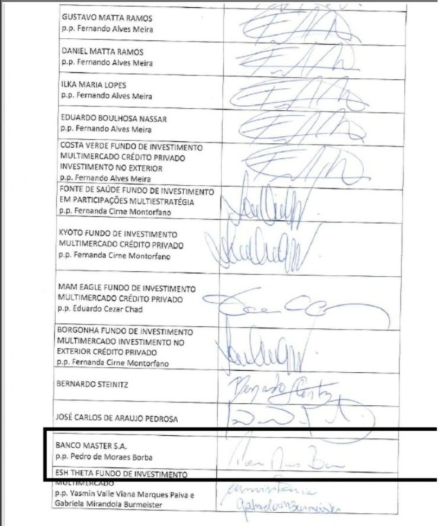 GUSTAVO MATTA RAMOS
p.p. Fernando Alves Meira
DANIEL MATTA RAMOS
p.p. Fernando Alves Meira
ILKA MARIA LOPES
p.p. Fernando Alves Meira
EDUARDO BOULHOSA NASSAR
p.p. Fernando Alves Meira
COSTA VERDE FUNDO DE INVESTIMENTO
MULTIMERCADO CRÉDITO PRIVADO
INVESTIMENTO NO EXTERIOR
p.p. Fernando Alves Meira
FONTE DE SAÚDE FUNDO DE INVESTIMENTO
EM PARTICIPAÇÕES MULTIESTRATÉGIA
p.p. Fernanda Cirne Montorfano
KYOTO FUNDO DE INVESTIMENTO
MULTIMERCADO CRÉDITO PRIVADO
p.p. Fernanda Cirne Montorfano
MAM EAGLE FUNDO DE INVESTIMENTO
MULTIMERCADO CRÉDITO PRIVADO
p.p. Eduardo Cezar Chad
BORGONHA FUNDO DE INVESTIMENTO
MULTIMERCADO INVESTIMENTO NO
EXTERIOR CRÉDITO PRIVADO
p.p. Fernanda Cirne Montorfano
BERNARDO STEINITZ
JOSÉ CARLOS DE ARAUJO PEDROSA
BANCO MASTER S.A.
p.p. Pedro de Moraes Borba
ESH THETA FUNDO DE INVESTIMENTO
MULTIMERCADO
p.p. Yasmin Valle Viana Marques Paiva e
Gabriela Mirandola Burmeister